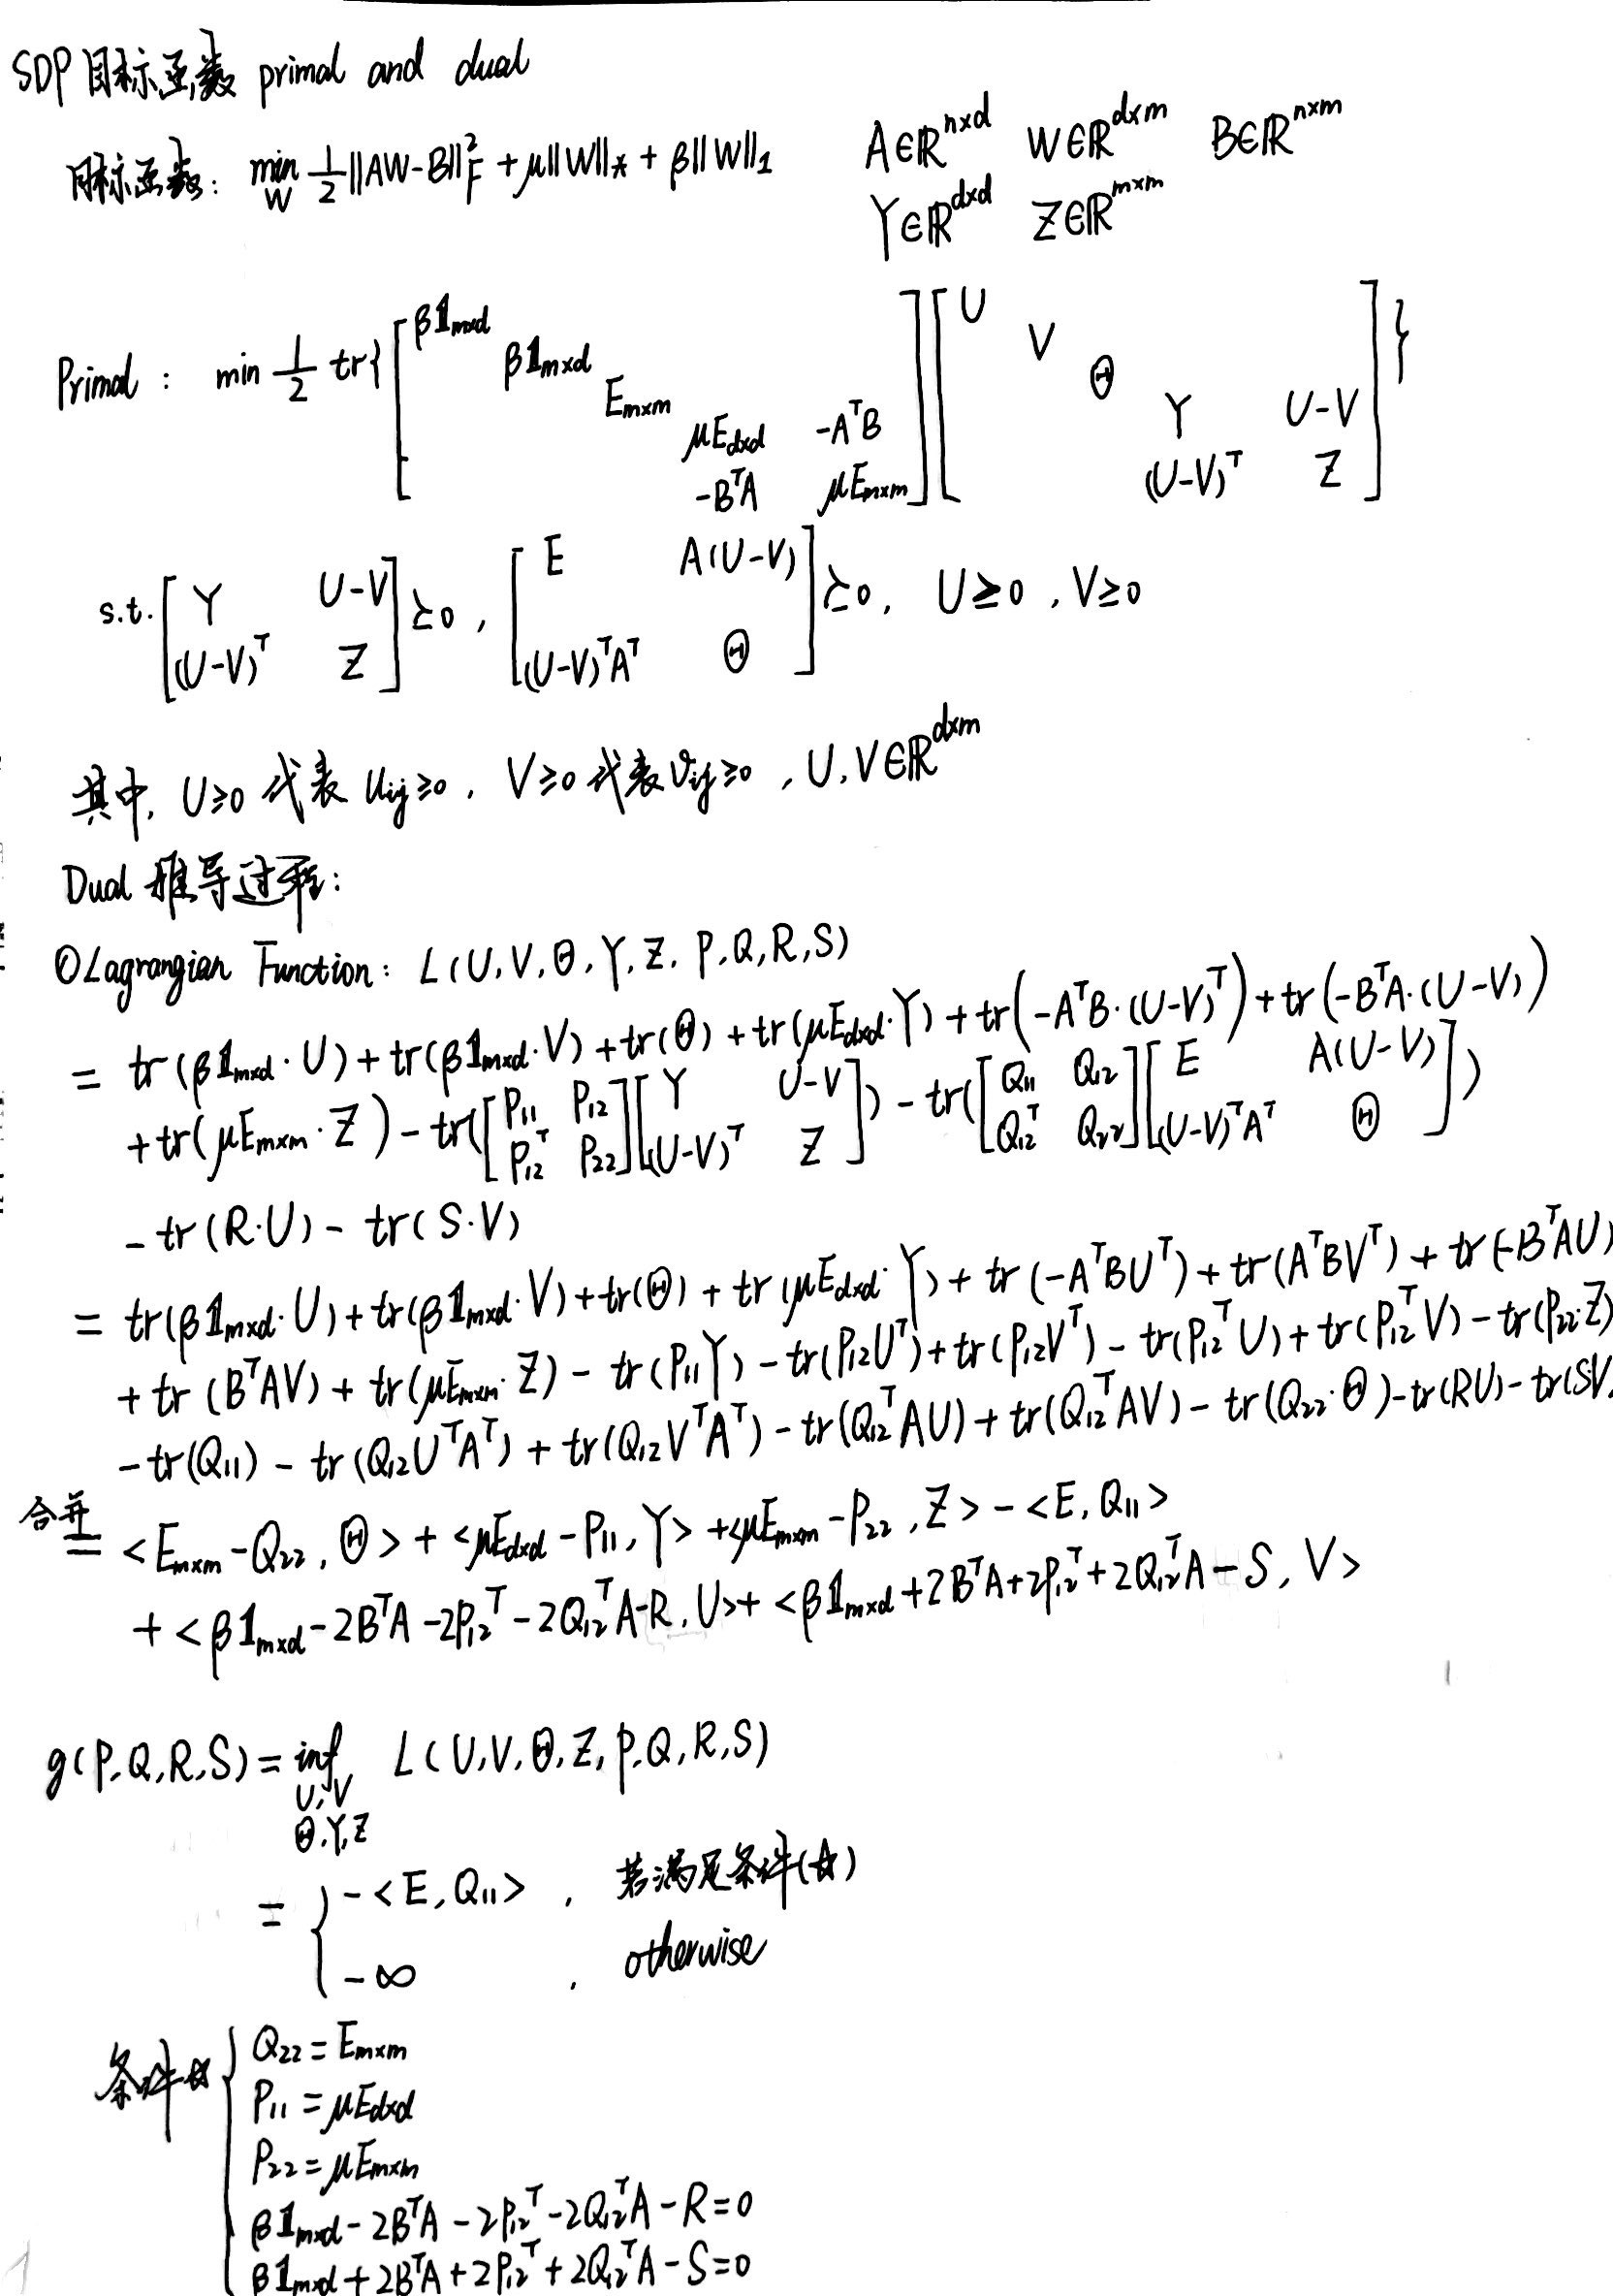 SDP 目标函数 primal and dual
目标函数: min_W 1/2 ||AW-B||_F^2 + μ||W||_* + β||W||_1   A∈ℝ^{n×d}  W∈ℝ^{d×m}  B∈ℝ^{n×m}
Y∈ℝ^{d×d}  Z∈ℝ^{m×m}
Primal : min 1/2 tr{ [ β𝟙_{m×d}, β𝟙_{m×d}, E_{m×m}, μE_{d×d} -A^TB ; -B^TA μE_{m×m} ] [ U, V, Θ, Y U-V ; (U-V)^T Z ] }
s.t. [ Y U-V ; (U-V)^T Z ] ⪰ 0 , [ E A(U-V) ; (U-V)^TA^T Θ ] ⪰ 0 , U≥0 , V≥0
其中, U≥0 代表 u_{ij}≥0 , V≥0 代表 v_{ij}≥0 , U,V∈ℝ^{d×m}
Dual 推导过程:
①Lagrangian Function: L(U,V,Θ,Y,Z,P,Q,R,S)
= tr(β𝟙_{m×d}·U) + tr(β𝟙_{m×d}·V) + tr(Θ) + tr(μE_{d×d}·Y) + tr(-A^TB·(U-V)^T) + tr(-B^TA·(U-V))
+ tr(μE_{m×m}·Z) - tr([ P_{11} P_{12} ; P_{12}^T P_{22} ][ Y U-V ; (U-V)^T Z ]) - tr([ Q_{11} Q_{12} ; Q_{12}^T Q_{22} ][ E A(U-V) ; (U-V)^TA^T Θ ])
- tr(R·U) - tr(S·V)
= tr(β𝟙_{m×d}·U) + tr(β𝟙_{m×d}·V) + tr(Θ) + tr(μE_{d×d}·Y) + tr(-A^TBU^T) + tr(A^TBV^T) + tr(-B^TAU)
+ tr(B^TAV) + tr(μE_{m×m}·Z) - tr(P_{11}Y) - tr(P_{12}U^T) + tr(P_{12}V^T) - tr(P_{12}^TU) + tr(P_{12}^TV) - tr(P_{22}·Z)
- tr(Q_{11}) - tr(Q_{12}U^TA^T) + tr(Q_{12}V^TA^T) - tr(Q_{12}^TAU) + tr(Q_{12}^TAV) - tr(Q_{22}·Θ) - tr(RU) - tr(SV)
合并
= <E_{m×m}-Q_{22}, Θ> + <μE_{d×d}-P_{11}, Y> + <μE_{m×m}-P_{22}, Z> - <E, Q_{11}>
+ <β𝟙_{m×d} - 2B^TA - 2P_{12}^T - 2Q_{12}^TA - R, U> + <β𝟙_{m×d} + 2B^TA + 2P_{12}^T + 2Q_{12}^TA - S, V>
g(P,Q,R,S) = inf L(U,V,Θ,Z,P,Q,R,S)
U,V
Θ,Y,Z
= { -<E,Q_{11}> , 若满足条件(☆)
-∞ , otherwise
条件☆ { Q_{22} = E_{m×m}
P_{11} = μE_{d×d}
P_{22} = μE_{m×m}
β𝟙_{m×d} - 2B^TA - 2P_{12}^T - 2Q_{12}^TA - R = 0
β𝟙_{m×d} + 2B^TA + 2P_{12}^T + 2Q_{12}^TA - S = 0